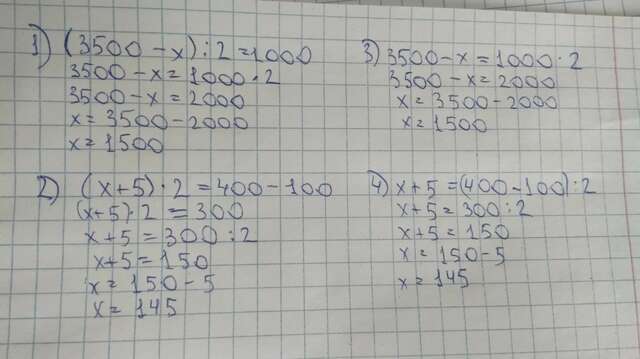 1) (3500 - x) : 2 = 1000
3500 - x = 1000 · 2
3500 - x = 2000
x = 3500 - 2000
x = 1500
2) (x + 5) · 2 = 400 - 100
(x + 5) · 2 = 300
x + 5 = 300 : 2
x + 5 = 150
x = 150 - 5
x = 145
3) 3500 - x = 1000 · 2
3500 - x = 2000
x = 3500 - 2000
x = 1500
4) x + 5 = (400 - 100) : 2
x + 5 = 300 : 2
x + 5 = 150
x = 150 - 5
x = 145